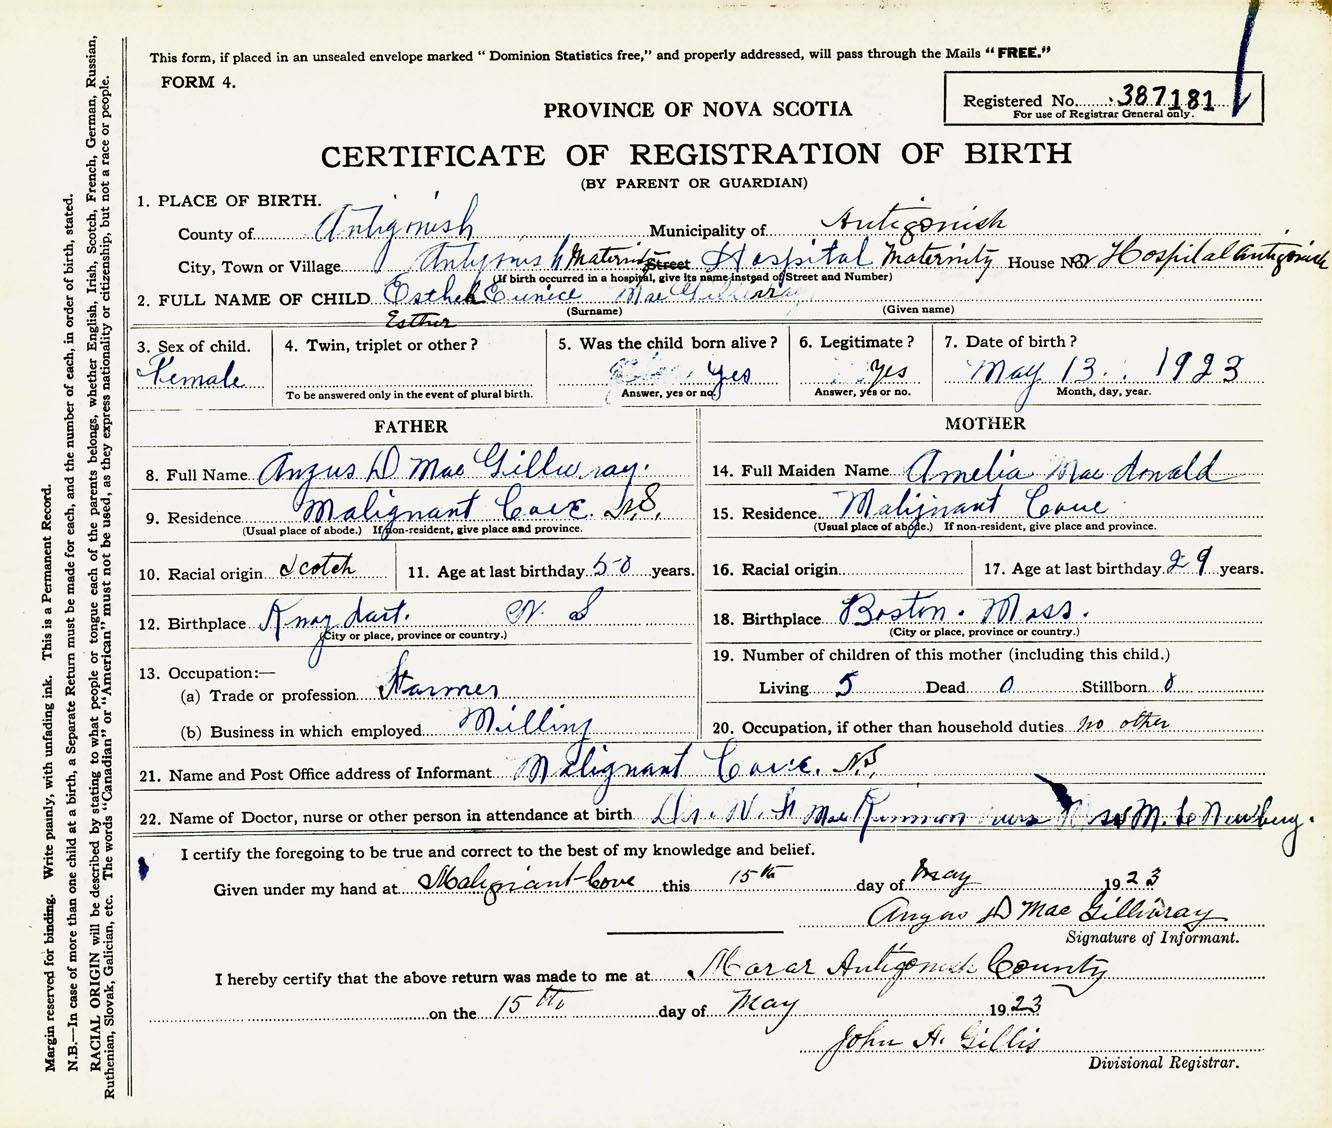 This form, if placed in an unsealed envelope marked “ Dominion Statistics free,” and properly addressed, will pass through the Mails “ FREE.”
FORM 4.
Registered No. 387181
For use of Registrar General only.
PROVINCE OF NOVA SCOTIA
CERTIFICATE OF REGISTRATION OF BIRTH
(BY PARENT OR GUARDIAN)
1. PLACE OF BIRTH.
County of Antigonish Municipality of Antigonish
City, Town or Village Antigonish Maternity Street Hospital Maternity House No. Hospital Antigonish
(If birth occurred in a hospital, give its name instead of Street and Number)
2. FULL NAME OF CHILD Esther Eunice MacGillivray
(Surname) (Given name)
Esther
3. Sex of child. Female
4. Twin, triplet or other ?
To be answered only in the event of plural birth.
5. Was the child born alive ? yes
Answer, yes or no.
6. Legitimate ? yes
Answer, yes or no.
7. Date of birth ? May 13. 1923
Month, day, year.
FATHER
8. Full Name Angus D MacGillivray.
9. Residence Malignant Cove. N.S.
(Usual place of abode.) If non-resident, give place and province.
10. Racial origin Scotch
11. Age at last birthday 50 years.
12. Birthplace Knoydart. N. S
(City or place, province or country.)
13. Occupation:—
(a) Trade or profession Farmer
(b) Business in which employed Milling
MOTHER
14. Full Maiden Name Amelia MacDonald
15. Residence Malignant Cove
(Usual place of abode.) If non-resident, give place and province.
16. Racial origin
17. Age at last birthday 29 years.
18. Birthplace Boston. Mass.
(City or place, province or country.)
19. Number of children of this mother (including this child.)
Living 5 Dead 0 Stillborn 0
20. Occupation, if other than household duties no other
21. Name and Post Office address of Informant Malignant Cove. N.S,
22. Name of Doctor, nurse or other person in attendance at birth Dr. W. F. MacKinnon M. Le Newbury.
I certify the foregoing to be true and correct to the best of my knowledge and belief.
Given under my hand at Malignant Cove this 15th day of May 1923
Angus D MacGillivray
Signature of Informant.
I hereby certify that the above return was made to me at Morar Antigonish County
on the 15th day of May 1923
John A. Gillis
Divisional Registrar.
Margin reserved for binding. Write plainly, with unfading ink. This is a Permanent Record.
N.B.—In case of more than one child at a birth, a Separate Return must be made for each, and the number of each, in order of birth, stated.
RACIAL ORIGIN will be described by stating to what people or tongue each of the parents belongs, whether English, Irish, Scotch, French, German, Russian,
Ruthenian, Slovak, Galician, etc. The words “Canadian” or “American” must not be used, as they express nationality or citizenship, but not a race or people.